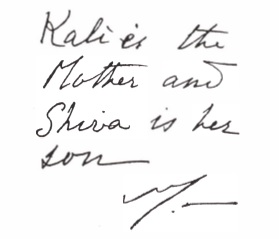 Kali is the
Mother and
Shiva is her
son
M.—